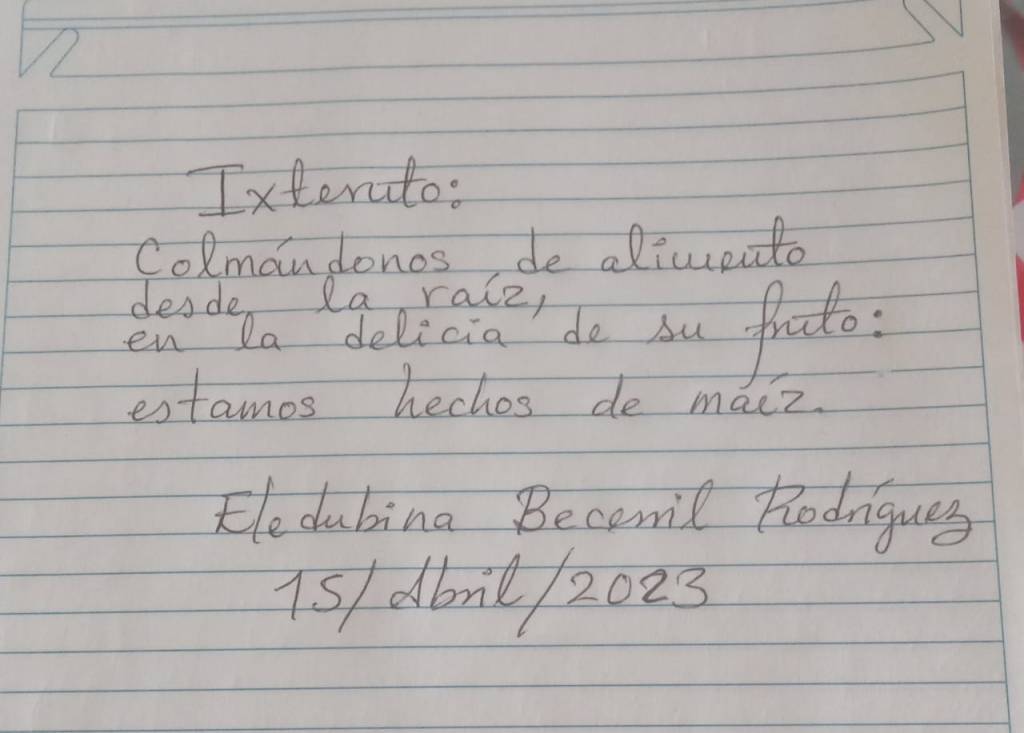 Ixteruto:
Colmándonos de alimento
desde la raíz,
en la delicia de su fruto:
estamos hechos de maíz.
Eledubina Becerril Rodríguez
15/Abril/2023